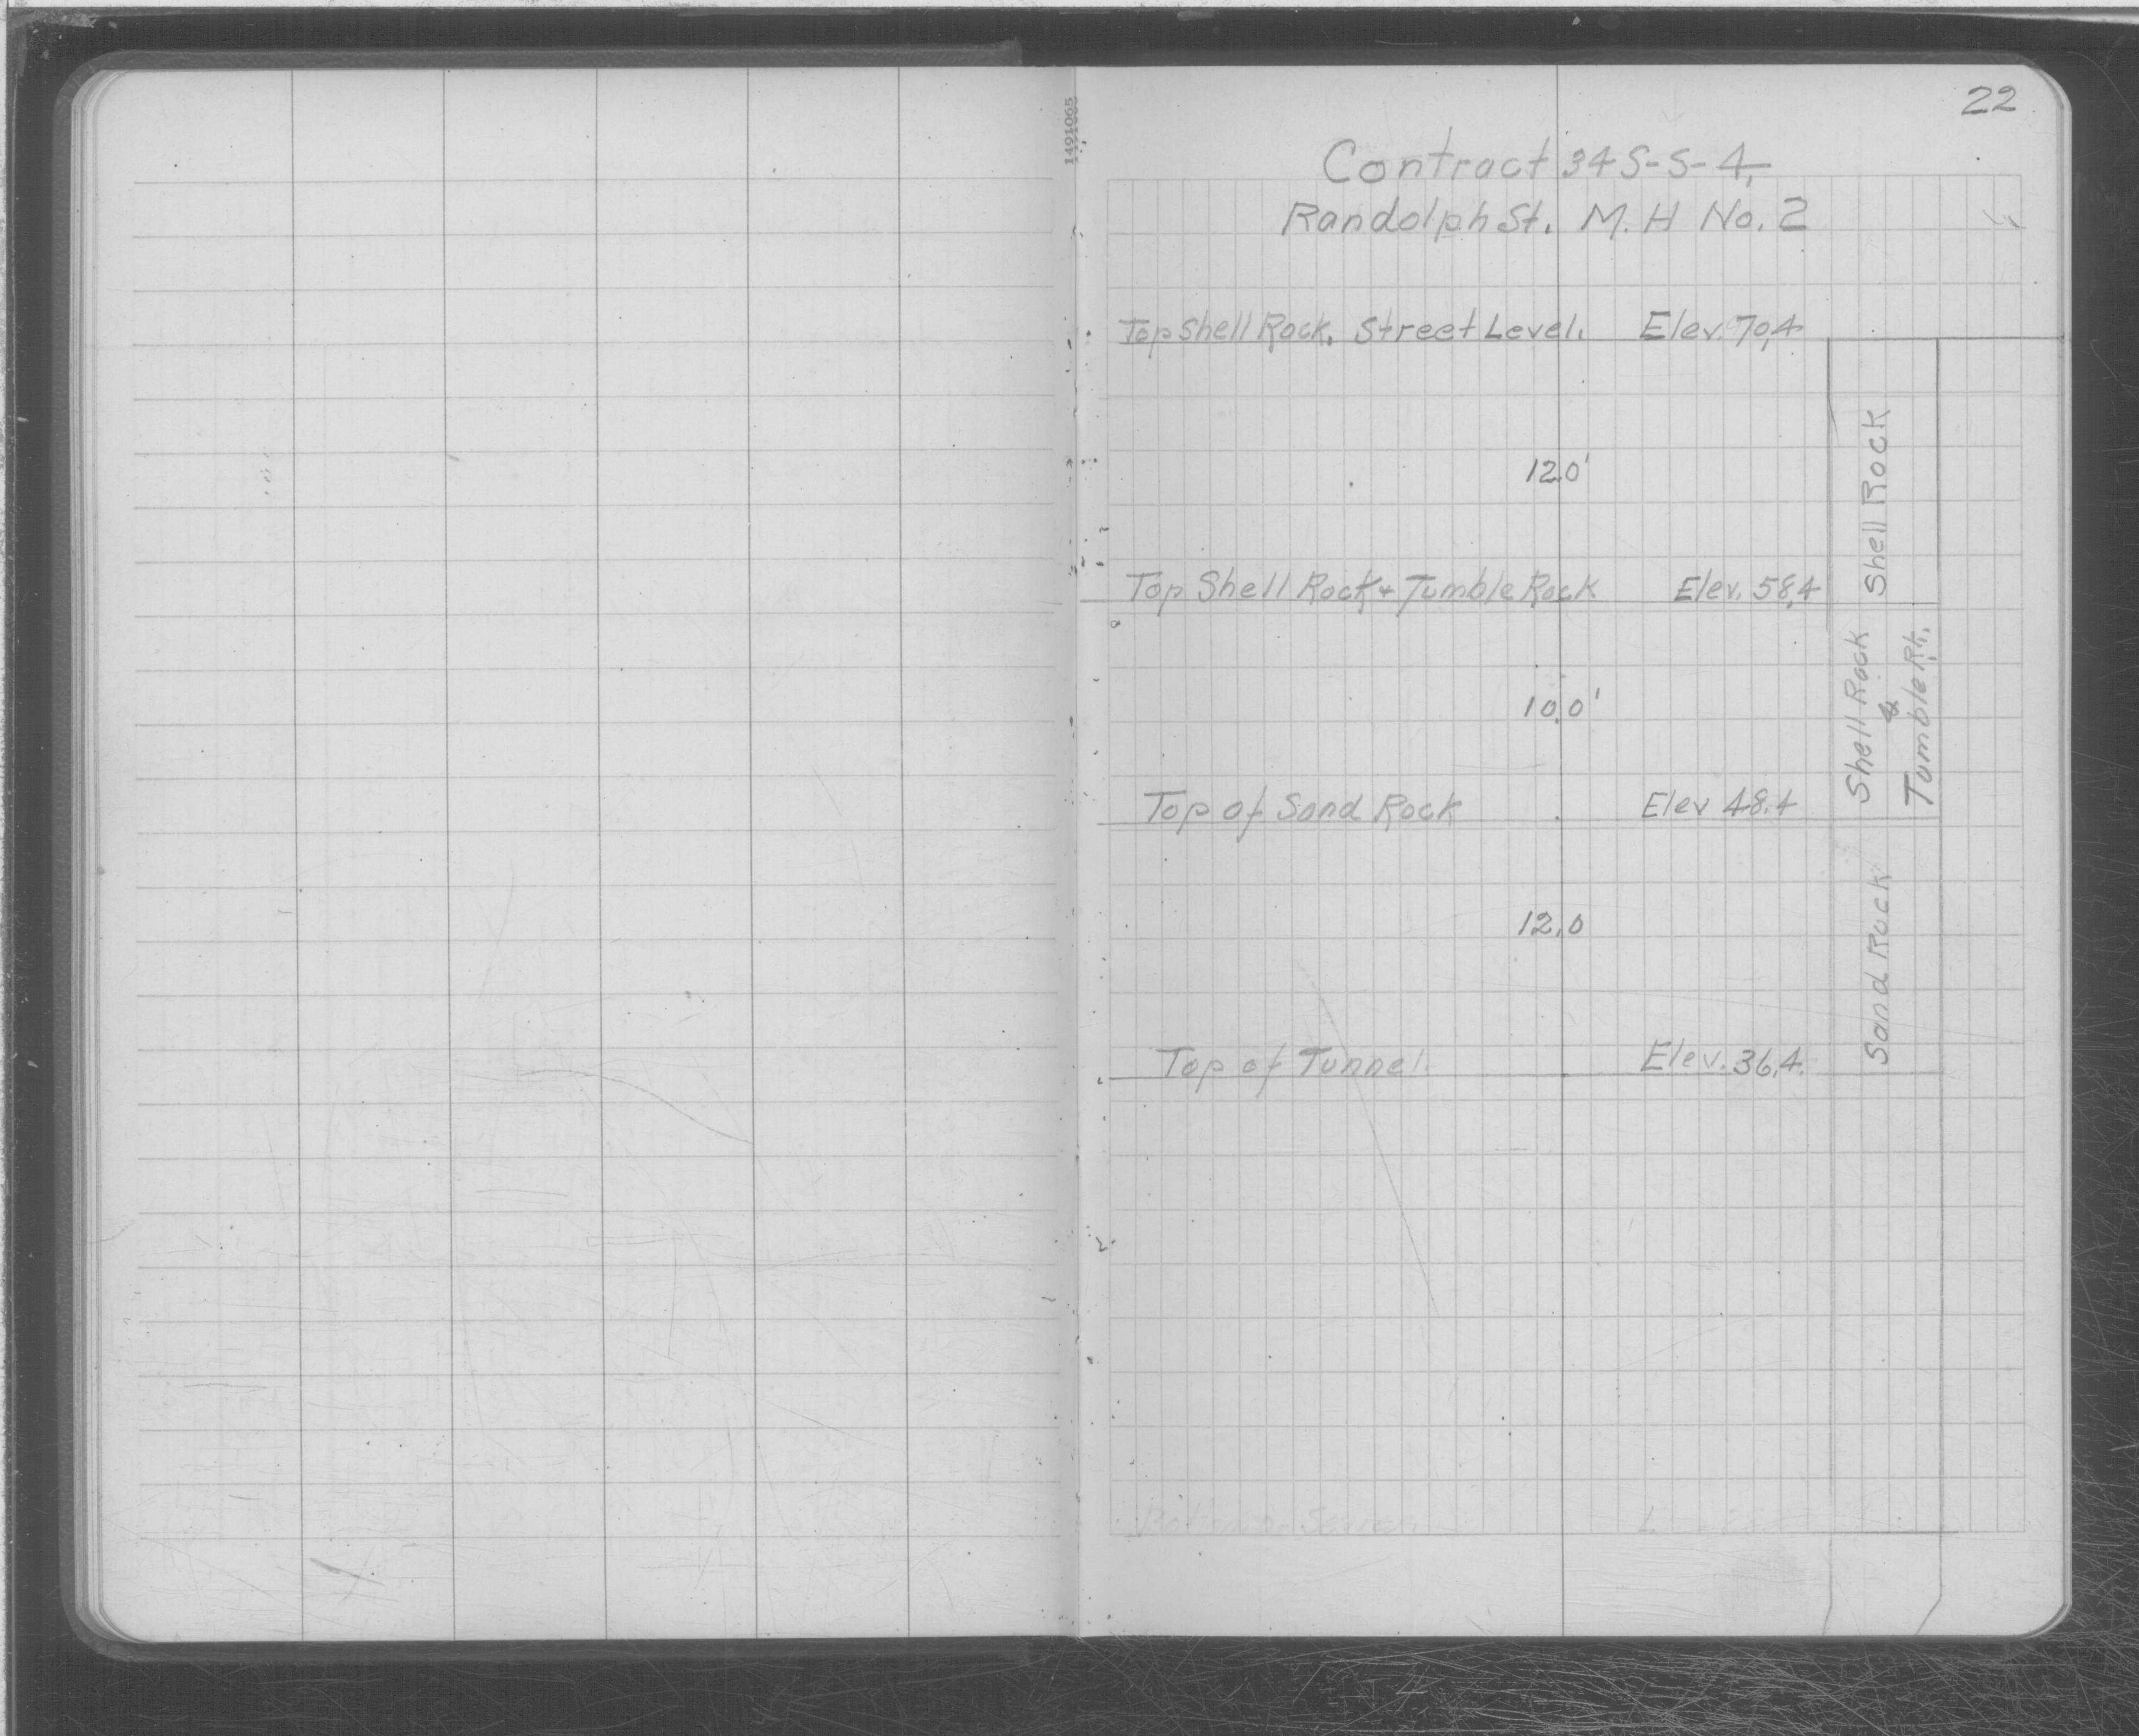 22
1491065
Contract 34 S-S-4,
Randolph St. M.H No. 2
Top Shell Rock. Street Level. Elev. 70,4
12.0'
Shell Rock
Top Shell Rock + Tumble Rock Elev. 58,4
10.0'
Shell Rock
&
Tumble Rk.
Top of Sand Rock Elev 48.4
12.0
Sand Rock
Top of Tunnel. Elev. 36,4.